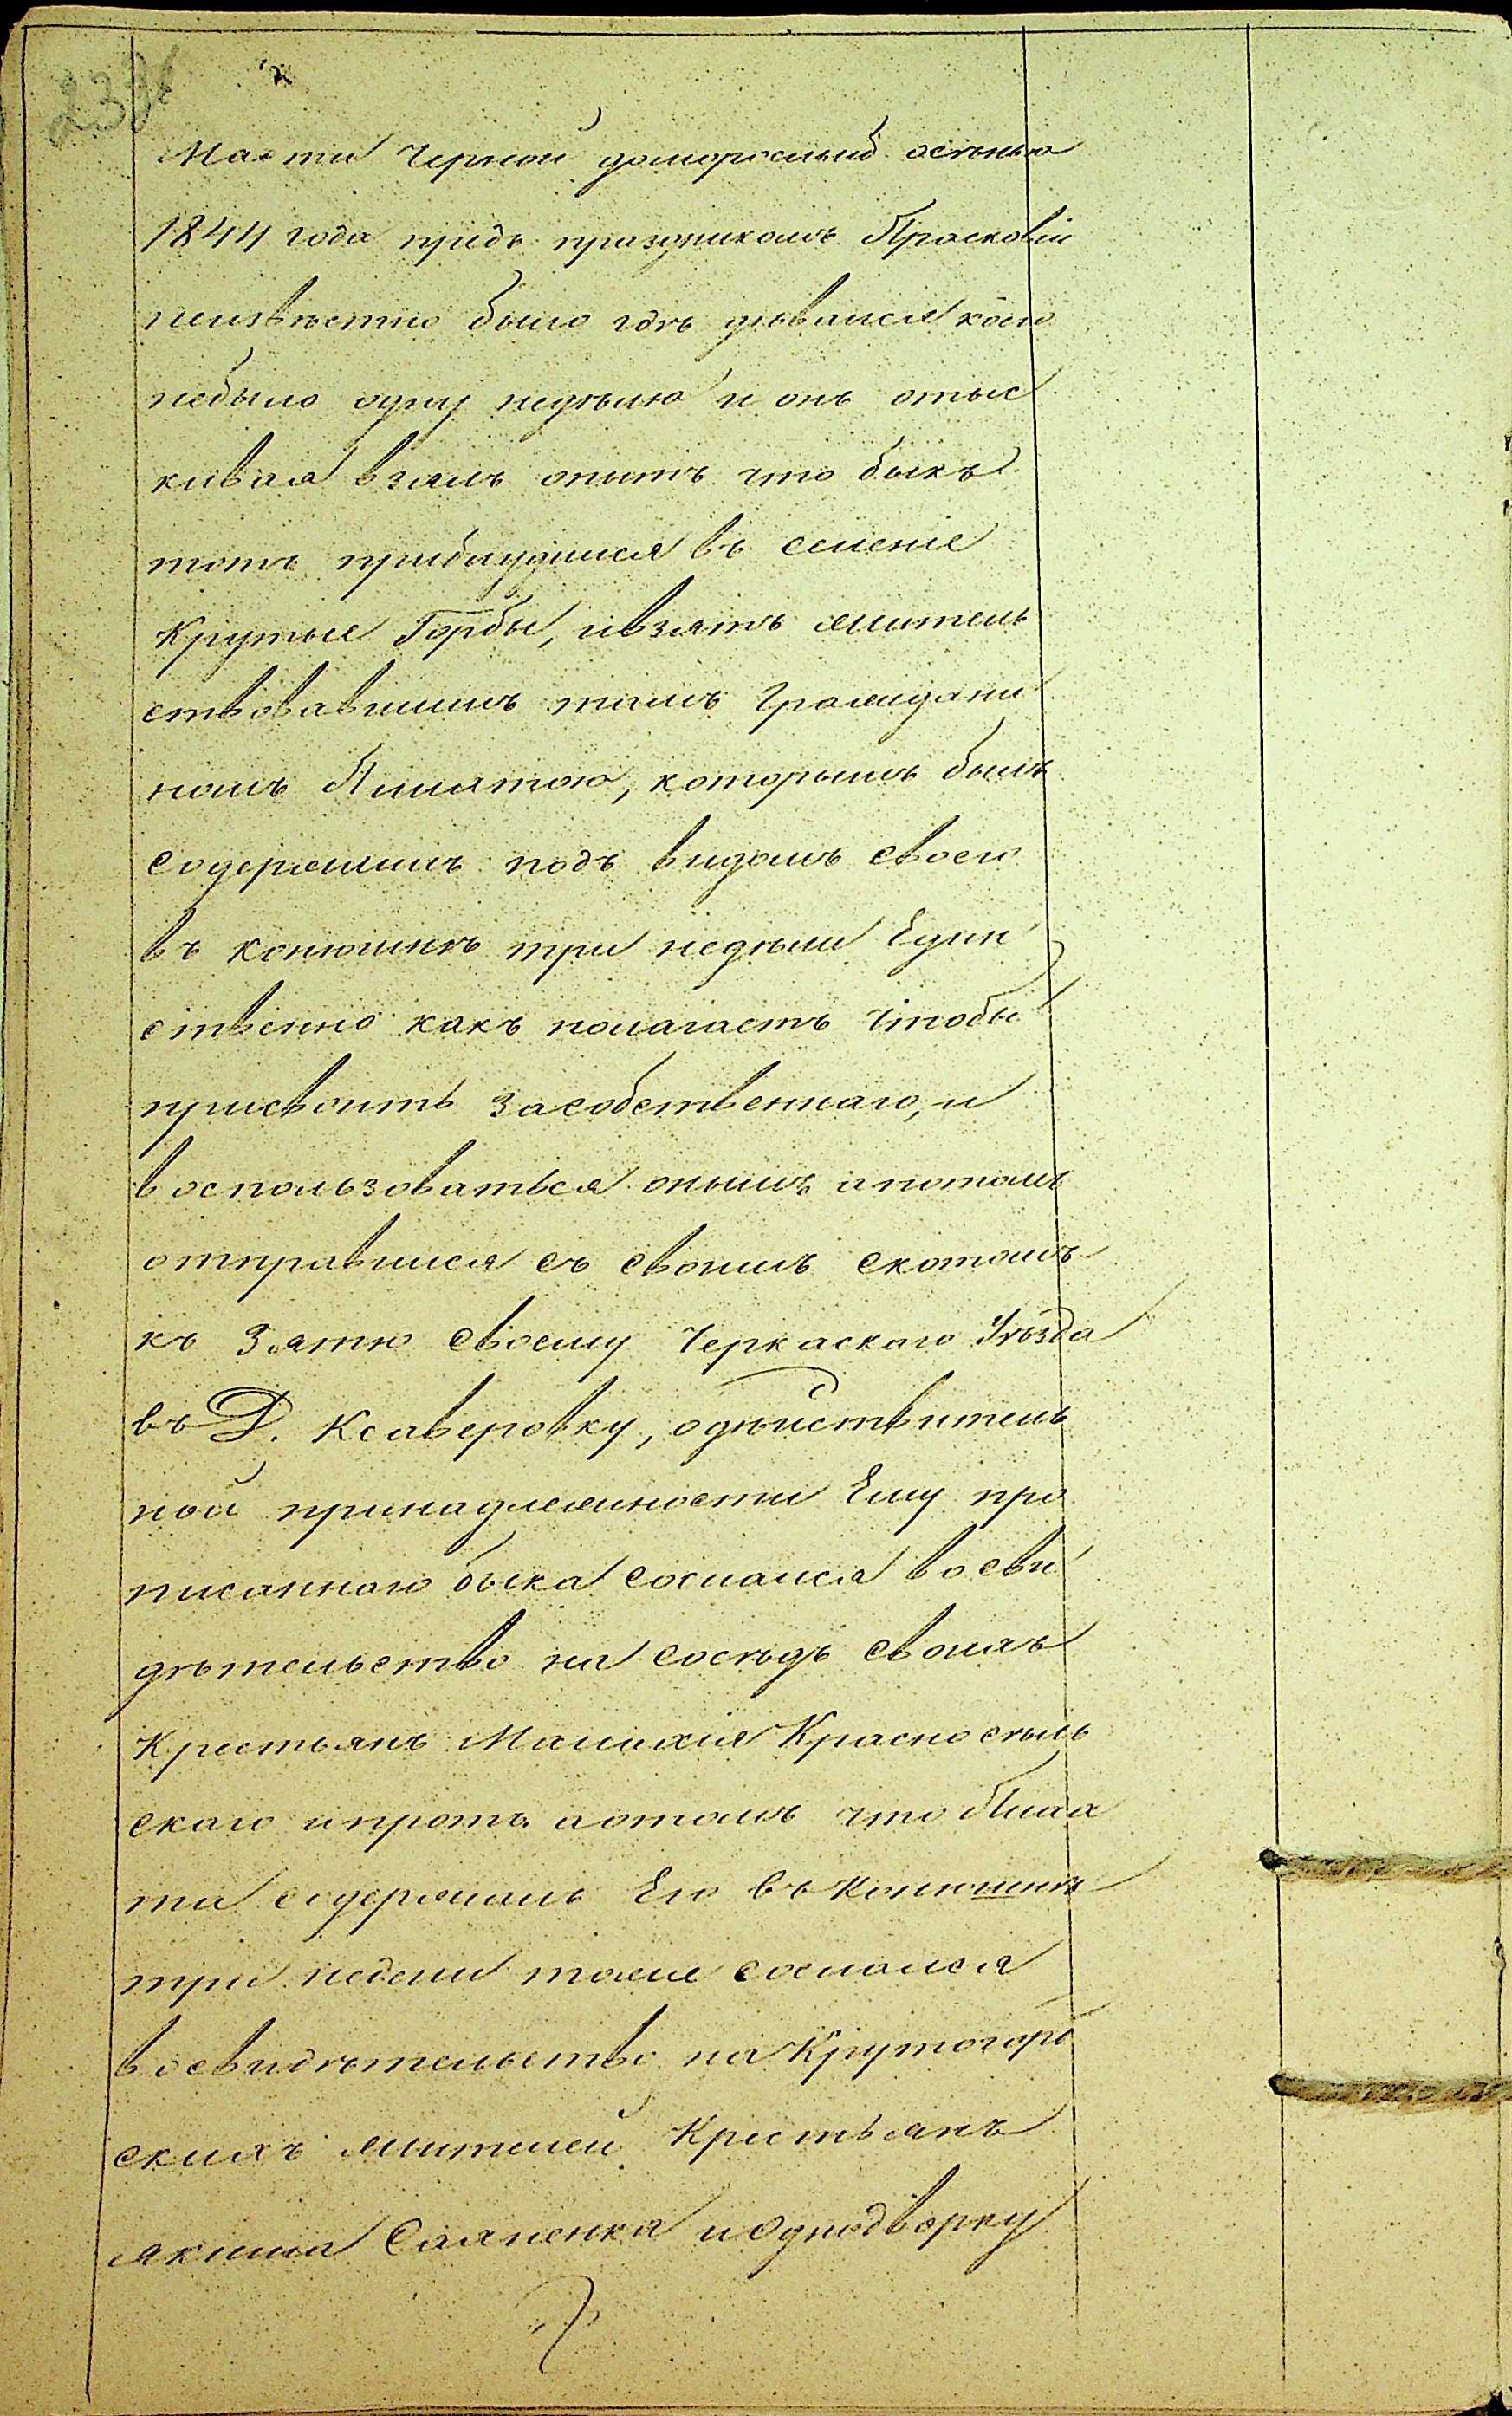 масти черной доморослый осѣнью
1844 года предъ праздникомъ Прасковіи
неизвѣстно было гдѣ дѣвался коего
небыло одну недѣлю и онъ отыс
кивая взялъ опытъ что быкъ
тотъ приблудился въ селеніе
Крутые Горбы, ивзятъ жытель
ствовавшимъ тамъ Граждани
номъ которымъ былъ
содержимъ подъ видомъ своего
въ конюшнѣ три недѣли Един
ственно какъ полагаетъ чтобы
присвоить засобственнаго, и
воспользоваться онымъ апотомъ
отправился съ своимъ скотомъ
къ Зятю своему Черкаскаго Уѣзда
въ Д. Ксаверовку, одѣйствитель
ной принадлежности Ему про
писаннаго быка сослался восви
дѣтельство на сосѣдъ своихъ
Крестьянъ Малахія Красносѣль
скаго ипротч. аотомъ что
та содержалъ Его въ конюшнѣ
три недели тоже сослался
восвидѣтельство на Крутогорб
скихъ жителей Крестьянъ
Якима и Однодворку